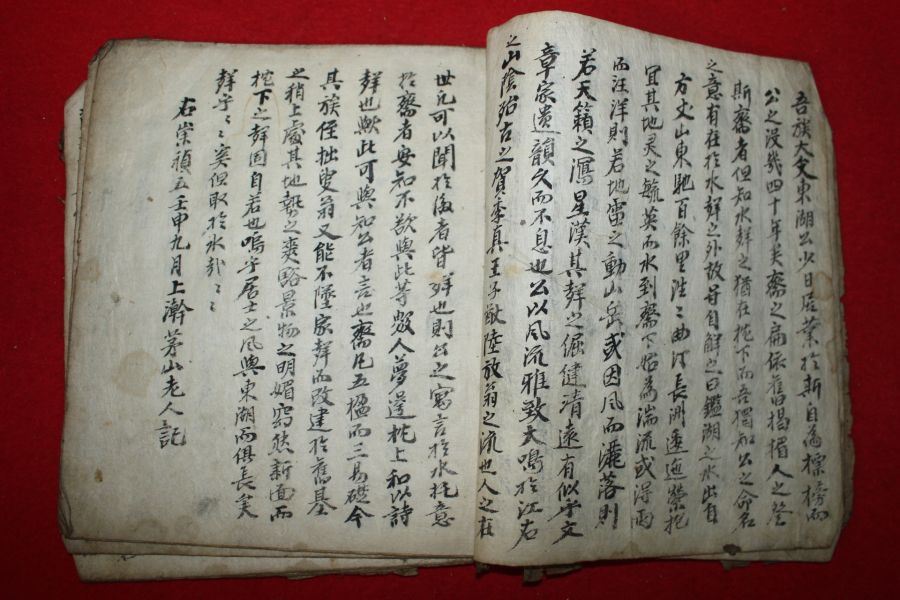 吾族大父東湖公少日居業於斯自為標榜而
公之沒幾四十年矣齋之扁依舊揭楣人之登
斯齋者但知水聲之猶在枕下而吾獨知公之命名
之意有在於水聲之外故并自解之曰鑑湖之水出自
方丈山東馳百餘里汪汪曲汀長洲逶迤縈抱
宜其地灵之毓英而水到齋下始為湍流或得雨
而汪洋則若地雷之動山岳或因風而灑落則
若天籟之瀉星漢其聲之倔健清遠有似乎文
章家遺韻久而不息也公以風流雅致大鳴於江右
之山陰殆古之賀季真王子猷陸放翁之流也人之在
世凡可以聞於後者皆聲也則公之寓言於水托意
於齋者安知不欲與此等數人夢邊枕上和以詩
聲也歟此可與知公者言也齋凡五楹而三易礎今
其族侄拙叟翁又能不墜家聲而改建於舊基
之稍上處其地勢之爽豁景物之明媚窈然新面而
枕下之聲固自若也嗚乎居士之風與東湖而俱長矣
聲乎聲乎寔但取於水哉水哉
右崇禎五壬申九月上澣茅山老人記